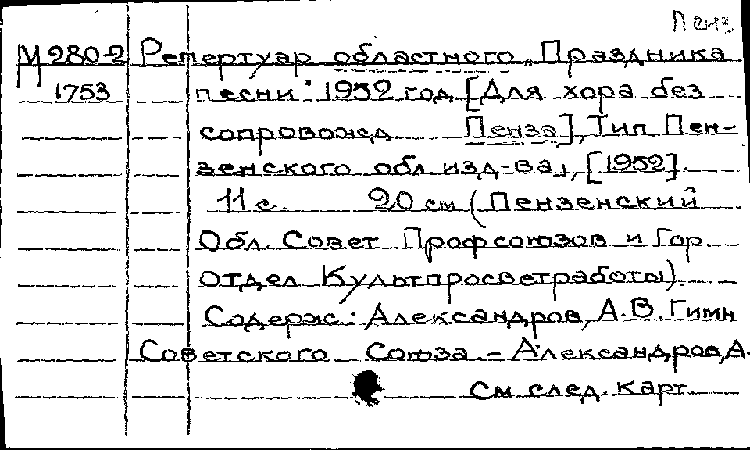 Пенз
М 280-2 Репертуар областного „Праздника
1753 песни" 1952 год [Для хора без
сопровожд Пенза], Тип Пен-
зенского обл изд-ва, [1952].
11 с. 20 см (Пензенский
Обл. Совет Профсоюзов и Гор
отдел Культпросветработы).
Содерж: Александров, А.В. Гимн
Советского Союза – Александров, А.
См след. карт